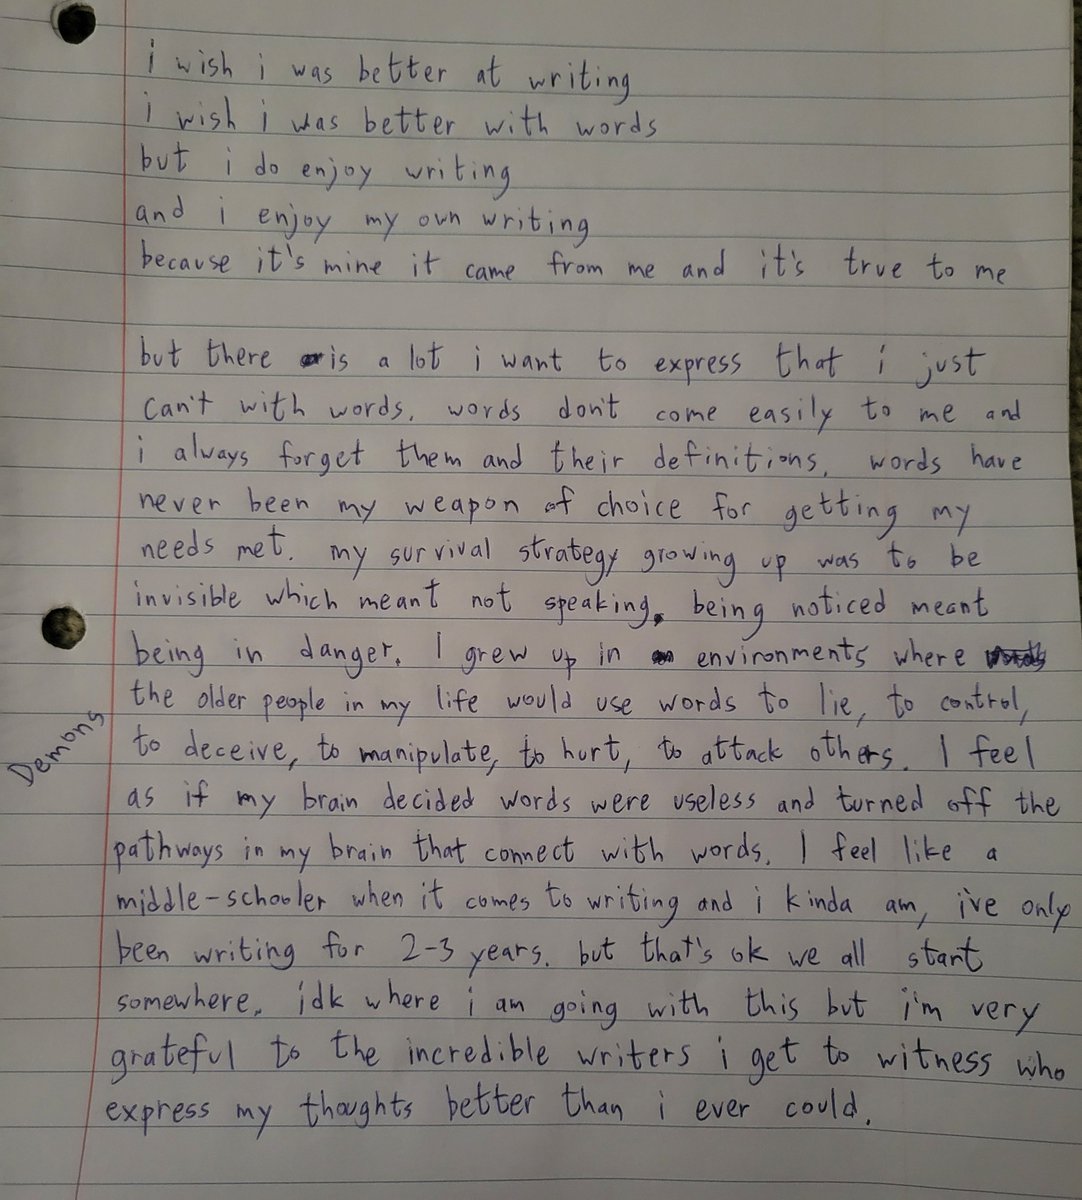 i wish i was better at writing
i wish i was better with words
but i do enjoy writing
and i enjoy my own writing
because it's mine it came from me and it's true to me
but there is a lot i want to express that i just
can't with words. words don't come easily to me and
i always forget them and their definitions. words have
never been my weapon of choice for getting my
needs met. my survival strategy growing up was to be
invisible which meant not speaking. being noticed meant
being in danger. I grew up in environments where
the older people in my life would use words to lie, to control,
Demons
to deceive, to manipulate, to hurt, to attack others. I feel
as if my brain decided words were useless and turned off the
pathways in my brain that connect with words. I feel like a
middle-schooler when it comes to writing and i kinda am, i've only
been writing for 2-3 years. but that's ok we all start
somewhere. idk where i am going with this but i'm very
grateful to the incredible writers i get to witness who
express my thoughts better than i ever could.